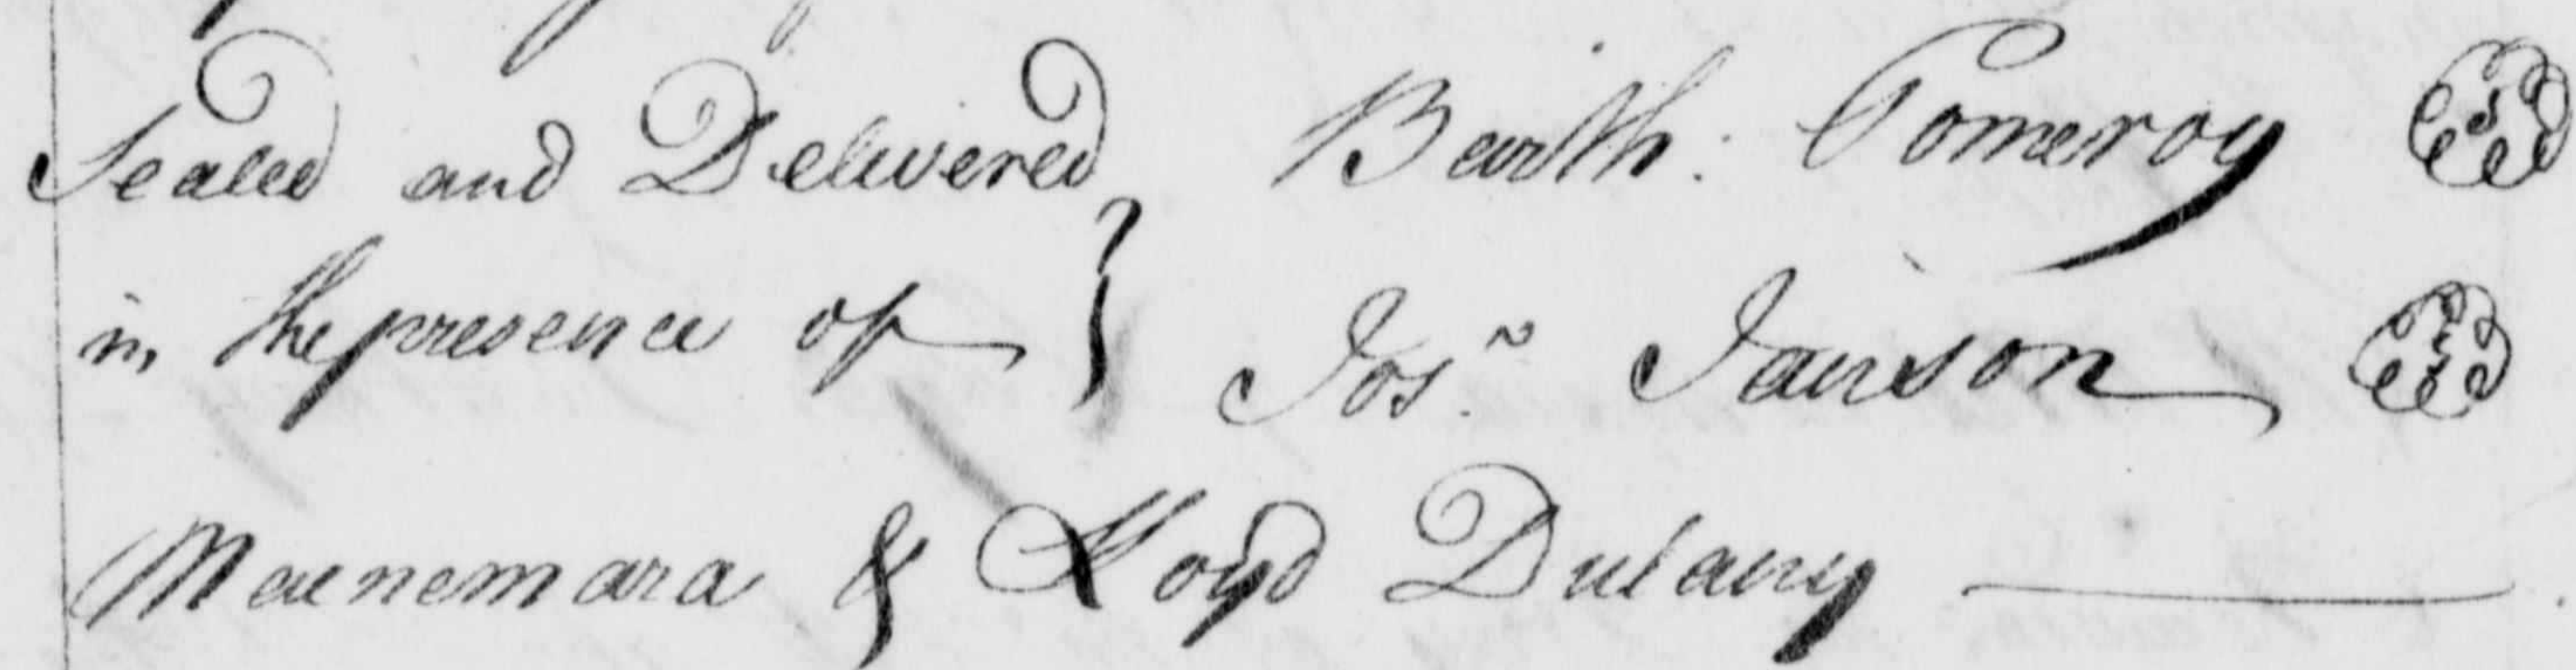 Sealed and Delivered Barth: Pomeroy
in the presence of } Jos.n Janson
Macnemara & Lloyd Dulany